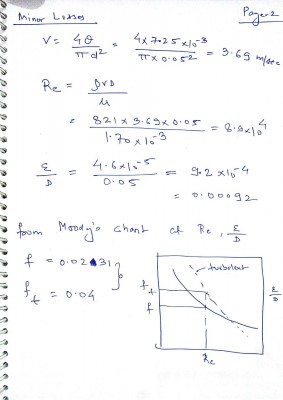 Minor Losses Page-2
V = 4Q / πd² = 4×7.25×10⁻³ / π×0.05² = 3.69 m/sec
Re = ρVD / μ
= 821×3.69×0.05 / 1.70×10⁻³ = 8.9×10⁴
ε/D = 4.6×10⁻⁵ / 0.05 = 9.2×10⁻⁴
= 0.00092
from Moody's chart at Re, ε/D
f = 0.0231
f_t = 0.04
turbulent
f_t
f
ε/D
Re